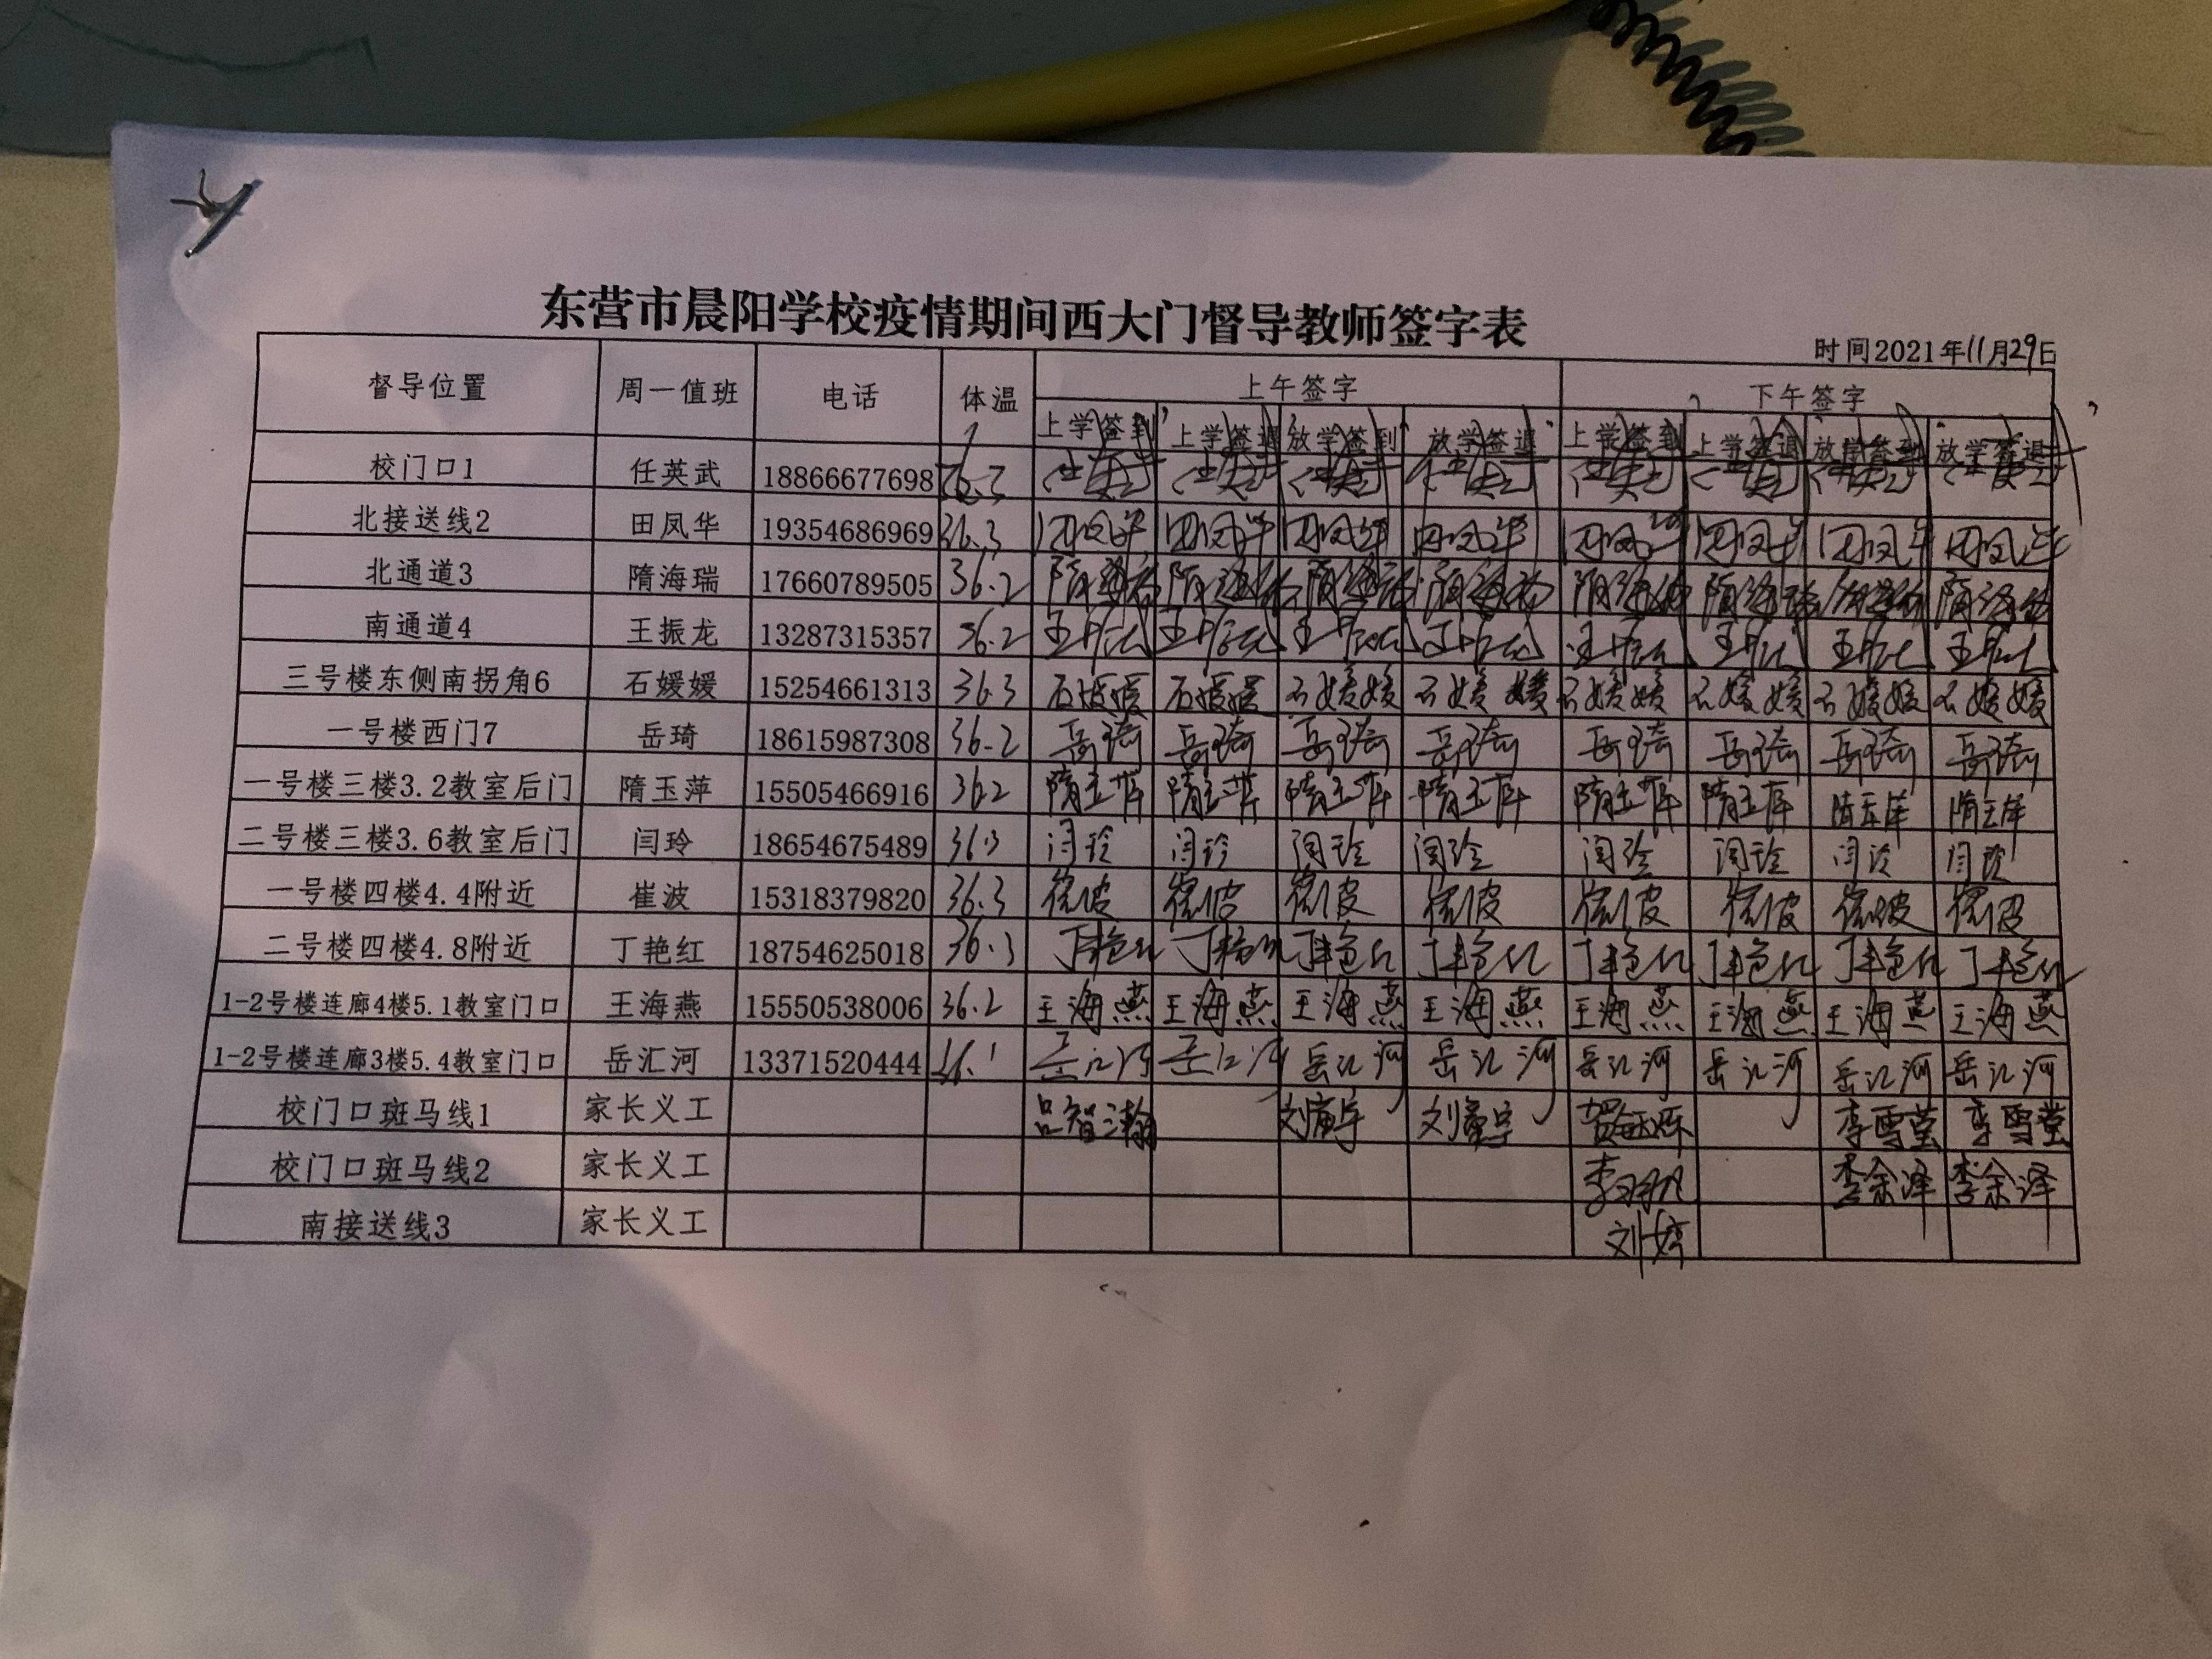 东营市晨阳学校疫情期间西大门督导教师签字表
时间2021年11月29日
督导位置 周一值班 电话 体温 上午签字 下午签字
上学签到 上学签退 放学签到 放学签退 上学签到 上学签退 放学签到 放学签退
校门口1 任英武 18866677698 36.3 任英武 任英武 任英武 任英武 任英武 任英武 任英武 任英武
北接送线2 田凤华 19354686969 36.3 田凤华 田凤华 田凤华 田凤华 田凤华 田凤华 田凤华 田凤华
北通道3 隋海瑞 17660789505 36.2 隋海瑞 隋海瑞 隋海瑞 隋海瑞 隋海瑞 隋海瑞 隋海瑞 隋海瑞
南通道4 王振龙 13287315357 36.2 王振龙 王振龙 王振龙 王振龙 王振龙 王振龙 王振龙 王振龙
三号楼东侧南拐角6 石媛媛 15254661313 36.3 石媛媛 石媛媛 石媛媛 石媛媛 石媛媛 石媛媛 石媛媛 石媛媛
一号楼西门7 岳琦 18615987308 36.2 岳琦 岳琦 岳琦 岳琦 岳琦 岳琦 岳琦 岳琦
一号楼三楼3.2教室后门 隋玉萍 15505466916 36.2 隋玉萍 隋玉萍 隋玉萍 隋玉萍 隋玉萍 隋玉萍 隋玉萍 隋玉萍
二号楼三楼3.6教室后门 闫玲 18654675489 36.3 闫玲 闫玲 闫玲 闫玲 闫玲 闫玲 闫玲 闫玲
一号楼四楼4.4附近 崔波 15318379820 36.3 崔波 崔波 崔波 崔波 崔波 崔波 崔波 崔波
二号楼四楼4.8附近 丁艳红 18754625018 36.3 丁艳红 丁艳红 丁艳红 丁艳红 丁艳红 丁艳红 丁艳红 丁艳红
1-2号楼连廊4楼5.1教室门口 王海燕 15550538006 36.2 王海燕 王海燕 王海燕 王海燕 王海燕 王海燕 王海燕 王海燕
1-2号楼连廊3楼5.4教室门口 岳汇河 13371520444 36.1 岳汇河 岳汇河 岳汇河 岳汇河 岳汇河 岳汇河 岳汇河 岳汇河
校门口斑马线1 家长义工 吕智瀚 李雪莹 李雪莹
校门口斑马线2 家长义工 李余泽 李余泽
南接送线3 家长义工 刘婷